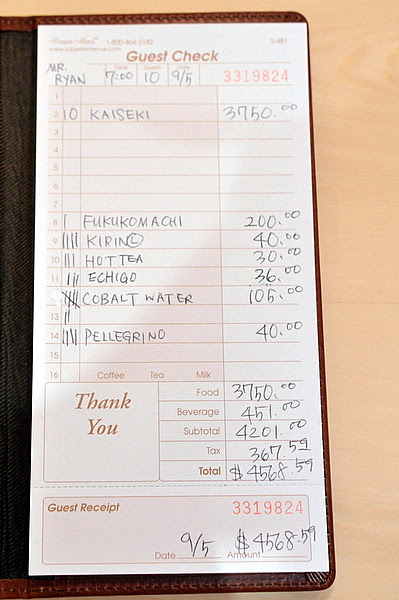 1-800-464-2182 S-481
www.superiormenus.com
Guest Check
MR. RYAN Table 7:00 Guests 10 Date 9/5 3319824
1
2 10 KAISEKI 3750.00
3
4
5
6
7
8 | FUKUKOMACHI 200.00
9 |||| KIRIN Ⓛ 40.00
10 ||| HOT TEA 30.00
11 ||| ECHIGO 36.00
COBALT WATER 105.00
13 ||
14 |||| PELLEGRINO 40.00
15
16 Coffee Tea Milk
Thank You
Food 3750.00
Beverage 451.00
Subtotal 4201.00
Tax 367.59
Total $4568.59
Guest Receipt 3319824
Date 9/5 Amount $4568.59